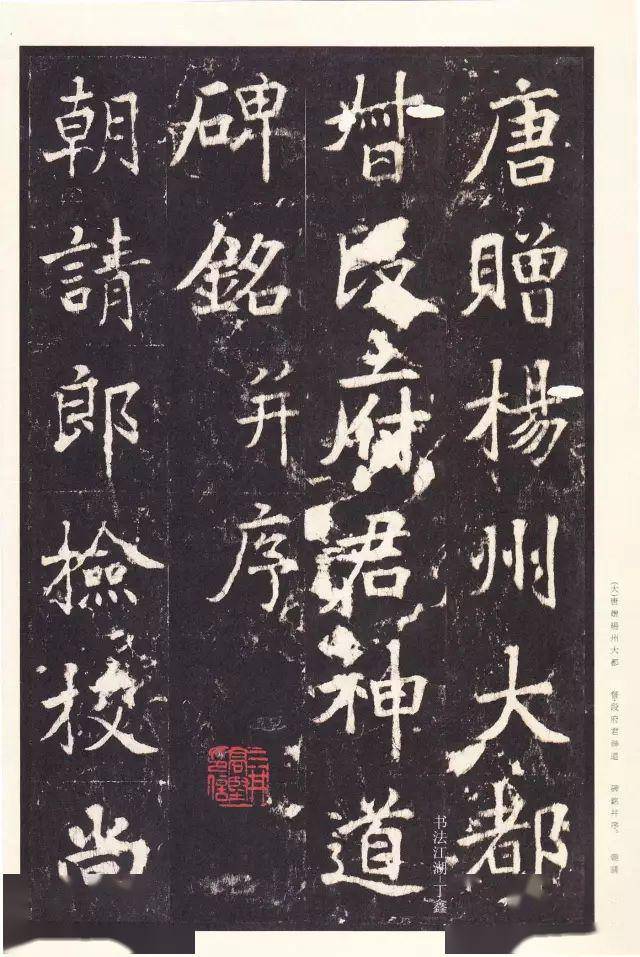 唐贈楊州大都
督段府君神道
碑銘并序
朝請郎檢挍尚
(大)唐贈楊州大都 督段府君神道 碑銘并序。 朝請
书法江湖 丁鑫